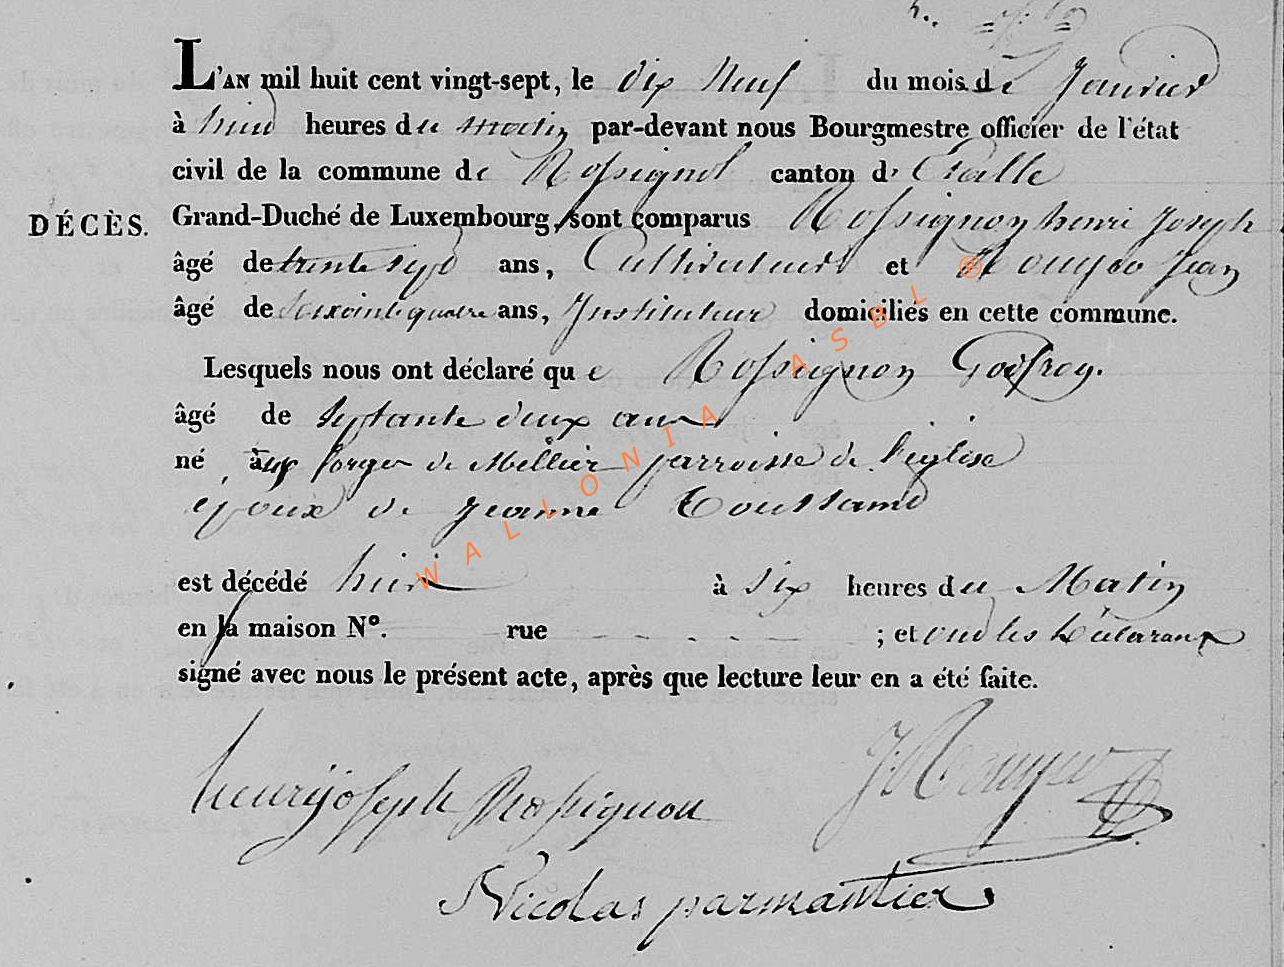 L'AN mil huit cent vingt-sept, le dix neuf du mois de Janvier
à huit heures du matin par-devant nous Bourgmestre officier de l'état
civil de la commune de Rossignol canton d' Etalle
DÉCÈS.
Grand-Duché de Luxembourg, sont comparus Rossignon henri Joseph
âgé de trente sept ans, Cultivateur et Jean
âgé de soixante quatre ans, Instituteur domiciliés en cette commune.
Lesquels nous ont déclaré que Rossignon Godfroy.
âgé de septante deux ans
né aux forges de Mellier parroisse de l'eglise
epoux de Jeanne Toussaint
est décédé hier à six heures du Matin
en la maison N°. rue ; et ont les déclarans
signé avec nous le présent acte, après que lecture leur en a été faite.
henry joseph Rossignon
Nicolas parmantier
WALLONIA ASBL